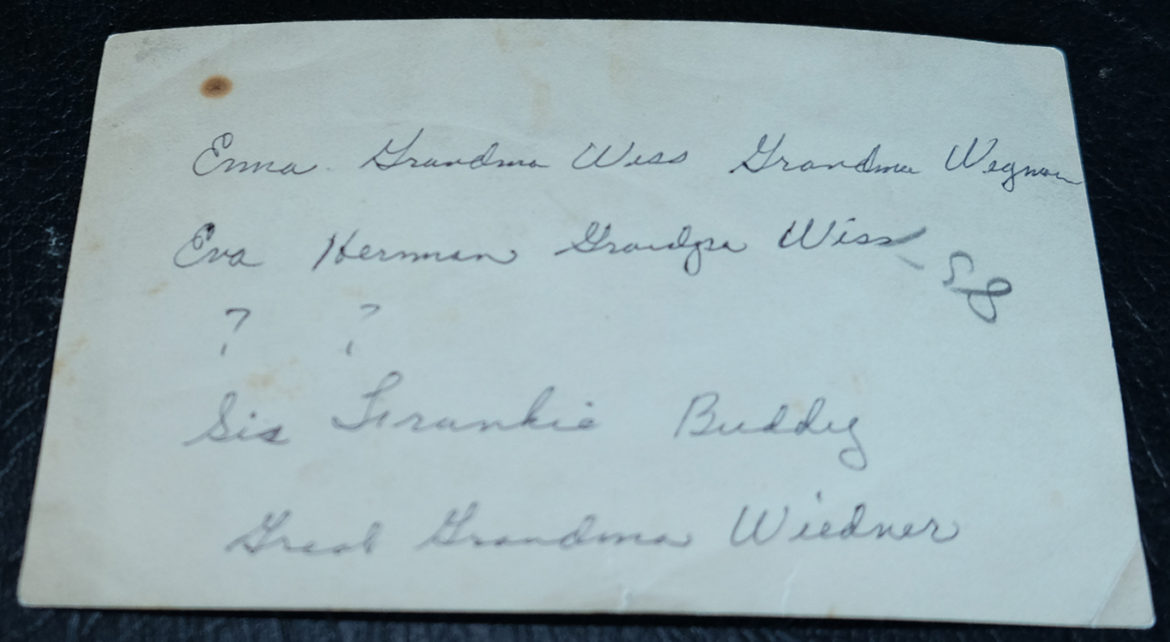 Emma Grandma Wiss Grandma Wegman
Eva Herman Grandpa Wiss
? ?
Sis Frankie Buddy
Great Grandma Wiedner